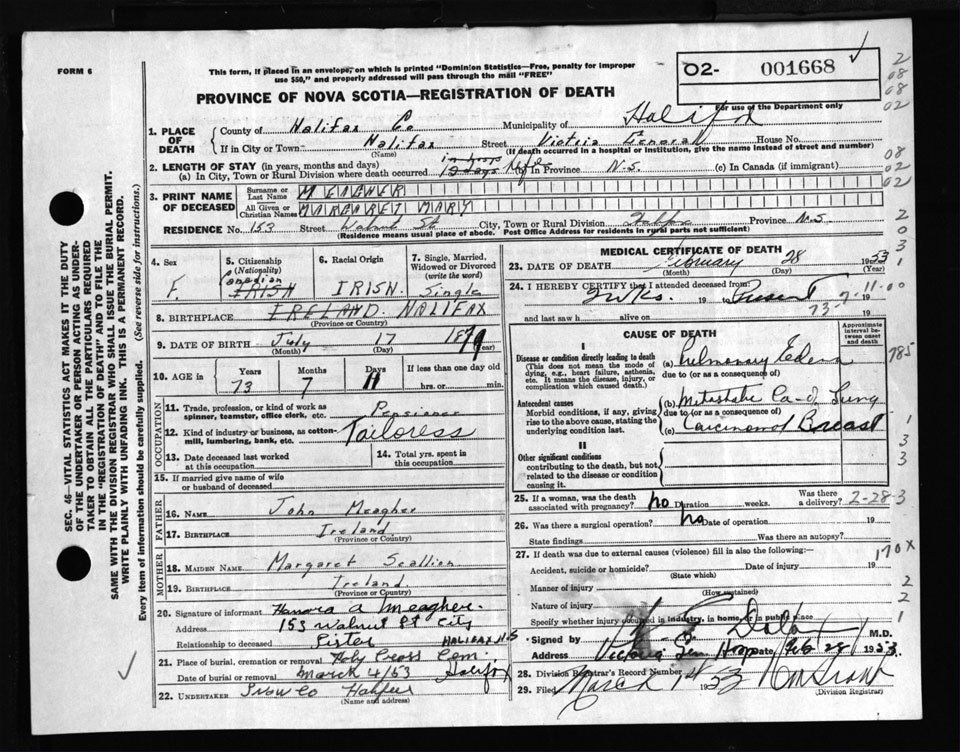 FORM 6
This form, if placed in an envelope, on which is printed "Dominion Statistics—Free, penalty for improper use $50," and properly addressed will pass through the mail "FREE"
02- 001668
For use of the Department only
PROVINCE OF NOVA SCOTIA—REGISTRATION OF DEATH
1. PLACE OF DEATH
County of Halifax Co Municipality of Halifax
If in City or Town Halifax Street Victoria General House No.
(Name) (If death occurred in a hospital or institution, give the name instead of street and number)
2. LENGTH OF STAY (in years, months and days)
(a) In City, Town or Rural Division where death occurred in hosp 12 days (b) In Province N.S. (c) In Canada (if immigrant)
3. PRINT NAME OF DECEASED
Surname or Last Name MEAGHER
All Given or Christian Names MARGARET MARY
RESIDENCE No. 153 Street Walnut St City, Town or Rural Division Halifax Province N.S
(Residence means usual place of abode. Post Office Address for residents in rural parts not sufficient)
4. Sex F.
5. Citizenship (Nationality) Canadian IRISH
6. Racial Origin IRISH.
7. Single, Married, Widowed or Divorced (write the word) Single
8. BIRTHPLACE IRELAND. HALIFAX
(Province or Country)
9. DATE OF BIRTH July 17 1879
(Month) (Day) (Year)
10. AGE in Years 73 Months 7 Days 11 If less than one day old hrs. or min.
OCCUPATION
11. Trade, profession, or kind of work as spinner, teamster, office clerk, etc. Pensioner
12. Kind of industry or business, as cotton-mill, lumbering, bank, etc. Tailoress
13. Date deceased last worked at this occupation
14. Total yrs. spent in this occupation
15. If married give name of wife or husband of deceased
FATHER
16. NAME John Meagher
17. BIRTHPLACE Ireland
(Province or Country)
MOTHER
18. MAIDEN NAME Margaret Scallion
19. BIRTHPLACE Ireland.
(Province or Country)
20. Signature of informant Hanora A Meagher.
Address 153 Walnut St City
Relationship to deceased Sister HALIFAX N.S
21. Place of burial, cremation or removal Holy Cross Cem.
Date of burial or removal March 4/53 Halifax
22. UNDERTAKER Snow Co Halifax
(Name and address)
MEDICAL CERTIFICATE OF DEATH
23. DATE OF DEATH February 28 1953
(Month) (Day) (Year)
24. I HEREBY CERTIFY that I attended deceased from:
2 wks. 19 to Present 19
and last saw h alive on 19
73-7-11-00
CAUSE OF DEATH
Approximate interval between onset and death
I
Disease or condition directly leading to death (This does not mean the mode of dying, e.g., heart failure, asthenia, etc. It means the disease, injury, or complication which caused death.)
(a) Pulmonary Edema
due to (or as a consequence of)
Antecedent causes
Morbid conditions, if any, giving rise to the above cause, stating the underlying condition last.
(b) Metastatic Ca of Lung
due to (or as a consequence of)
(c) Carcinoma of Breast
II
Other significant conditions
contributing to the death, but not related to the disease or condition causing it.
785
25. If a woman, was the death associated with pregnancy? no Duration weeks. Was there a delivery?
2-28-3
26. Was there a surgical operation? no Date of operation 19
State findings Was there an autopsy?
27. If death was due to external causes (violence) fill in also the following:—
Accident, suicide or homicide? Date of injury 19
(State which)
170X
Manner of injury
(How sustained)
Nature of injury
Specify whether injury occurred in industry, in home, or in public place
Signed by M.D.
Address Victoria Gen Hosp Date Feb 28 1953.
28. Division Registrar's Record Number
29. Filed March 1 1953
(Division Registrar)
SEC. 46—VITAL STATISTICS ACT MAKES IT THE DUTY OF THE UNDERTAKER OR PERSON ACTING AS UNDERTAKER TO OBTAIN ALL THE PARTICULARS REQUIRED IN THE "REGISTRATION OF DEATH" AND TO FILE THE SAME WITH THE DIVISION REGISTRAR WHO SHALL ISSUE THE BURIAL PERMIT.
WRITE PLAINLY WITH UNFADING INK. THIS IS A PERMANENT RECORD.
Every item of information should be carefully supplied. (See reverse side for instructions.)